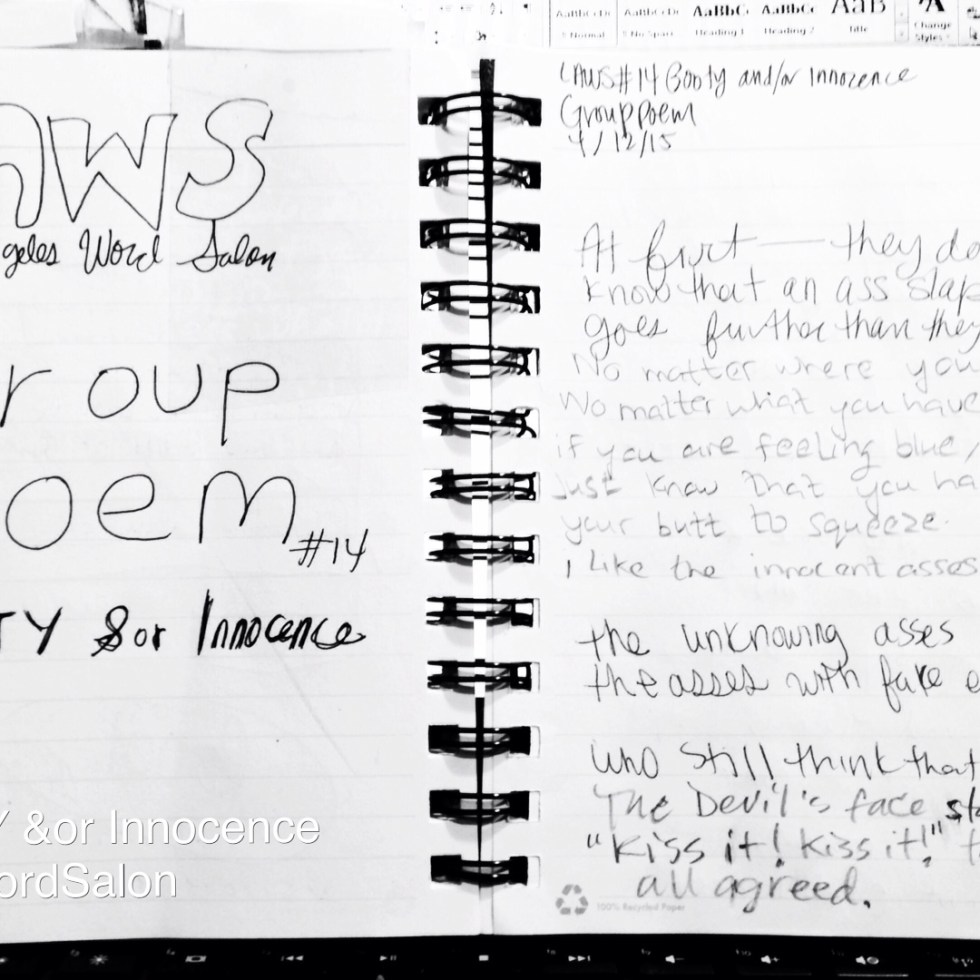 AaBbCcDc
AaBbCcDc
AaBbC
AaBbCc
AaB
Normal
No Spaci
Heading 1
Heading 2
Title
Change
Styles
AWS
geles Word Salon
roup
oem
#14
TY &or Innocence
Y &or Innocence
ordSalon
LAWS#14 Booty and/or Innocence
Group Poem
4/12/15
At first — they do
know that an ass slap
goes further than they
No matter where you
No matter what you have
if you are feeling blue,
Just know that you ha
your butt to squeeze.
I like the innocent asses
the unknowing asses
the asses with fake e
who still think that
The Devil's face sla
"Kiss it! Kiss it!" t
all agreed.
100% Recycled Paper